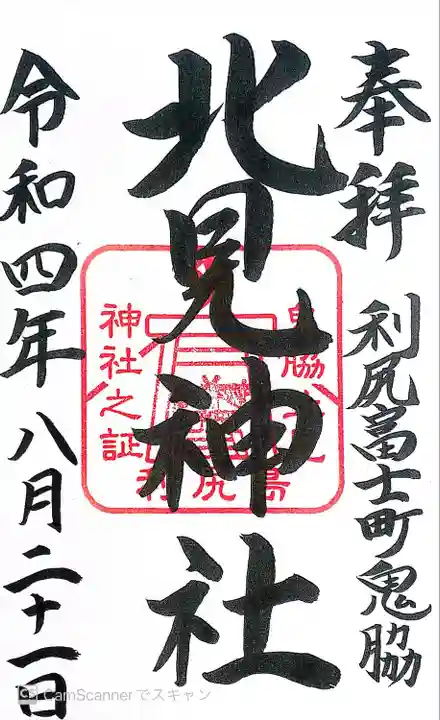 奉拝
利尻富士町鬼脇
北見神社
神社之証
利尻島
令和四年八月二十一日
CamScannerでスキャン